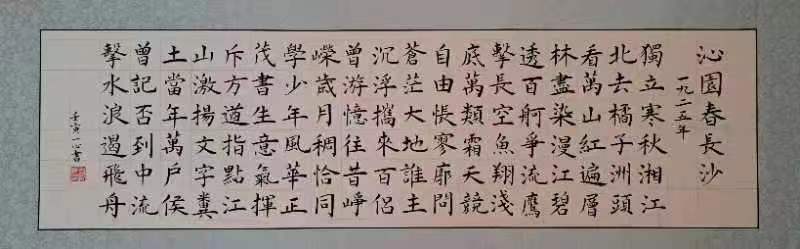 沁園春長沙
一九二五年
獨立寒秋湘江
北去橘子洲頭
看萬山紅遍層
林盡染漫江碧
透百舸爭流鷹
擊長空魚翔淺
底萬類霜天競
自由悵寥廓問
蒼茫大地誰主
沉浮攜來百侶
曾游憶往昔崢
嶸歲月稠恰同
學少年風華正
茂書生意氣揮
斥方遒指點江
山激揚文字糞
土當年萬戶侯
曾記否到中流
擊水浪遏飛舟
壬寅一心書